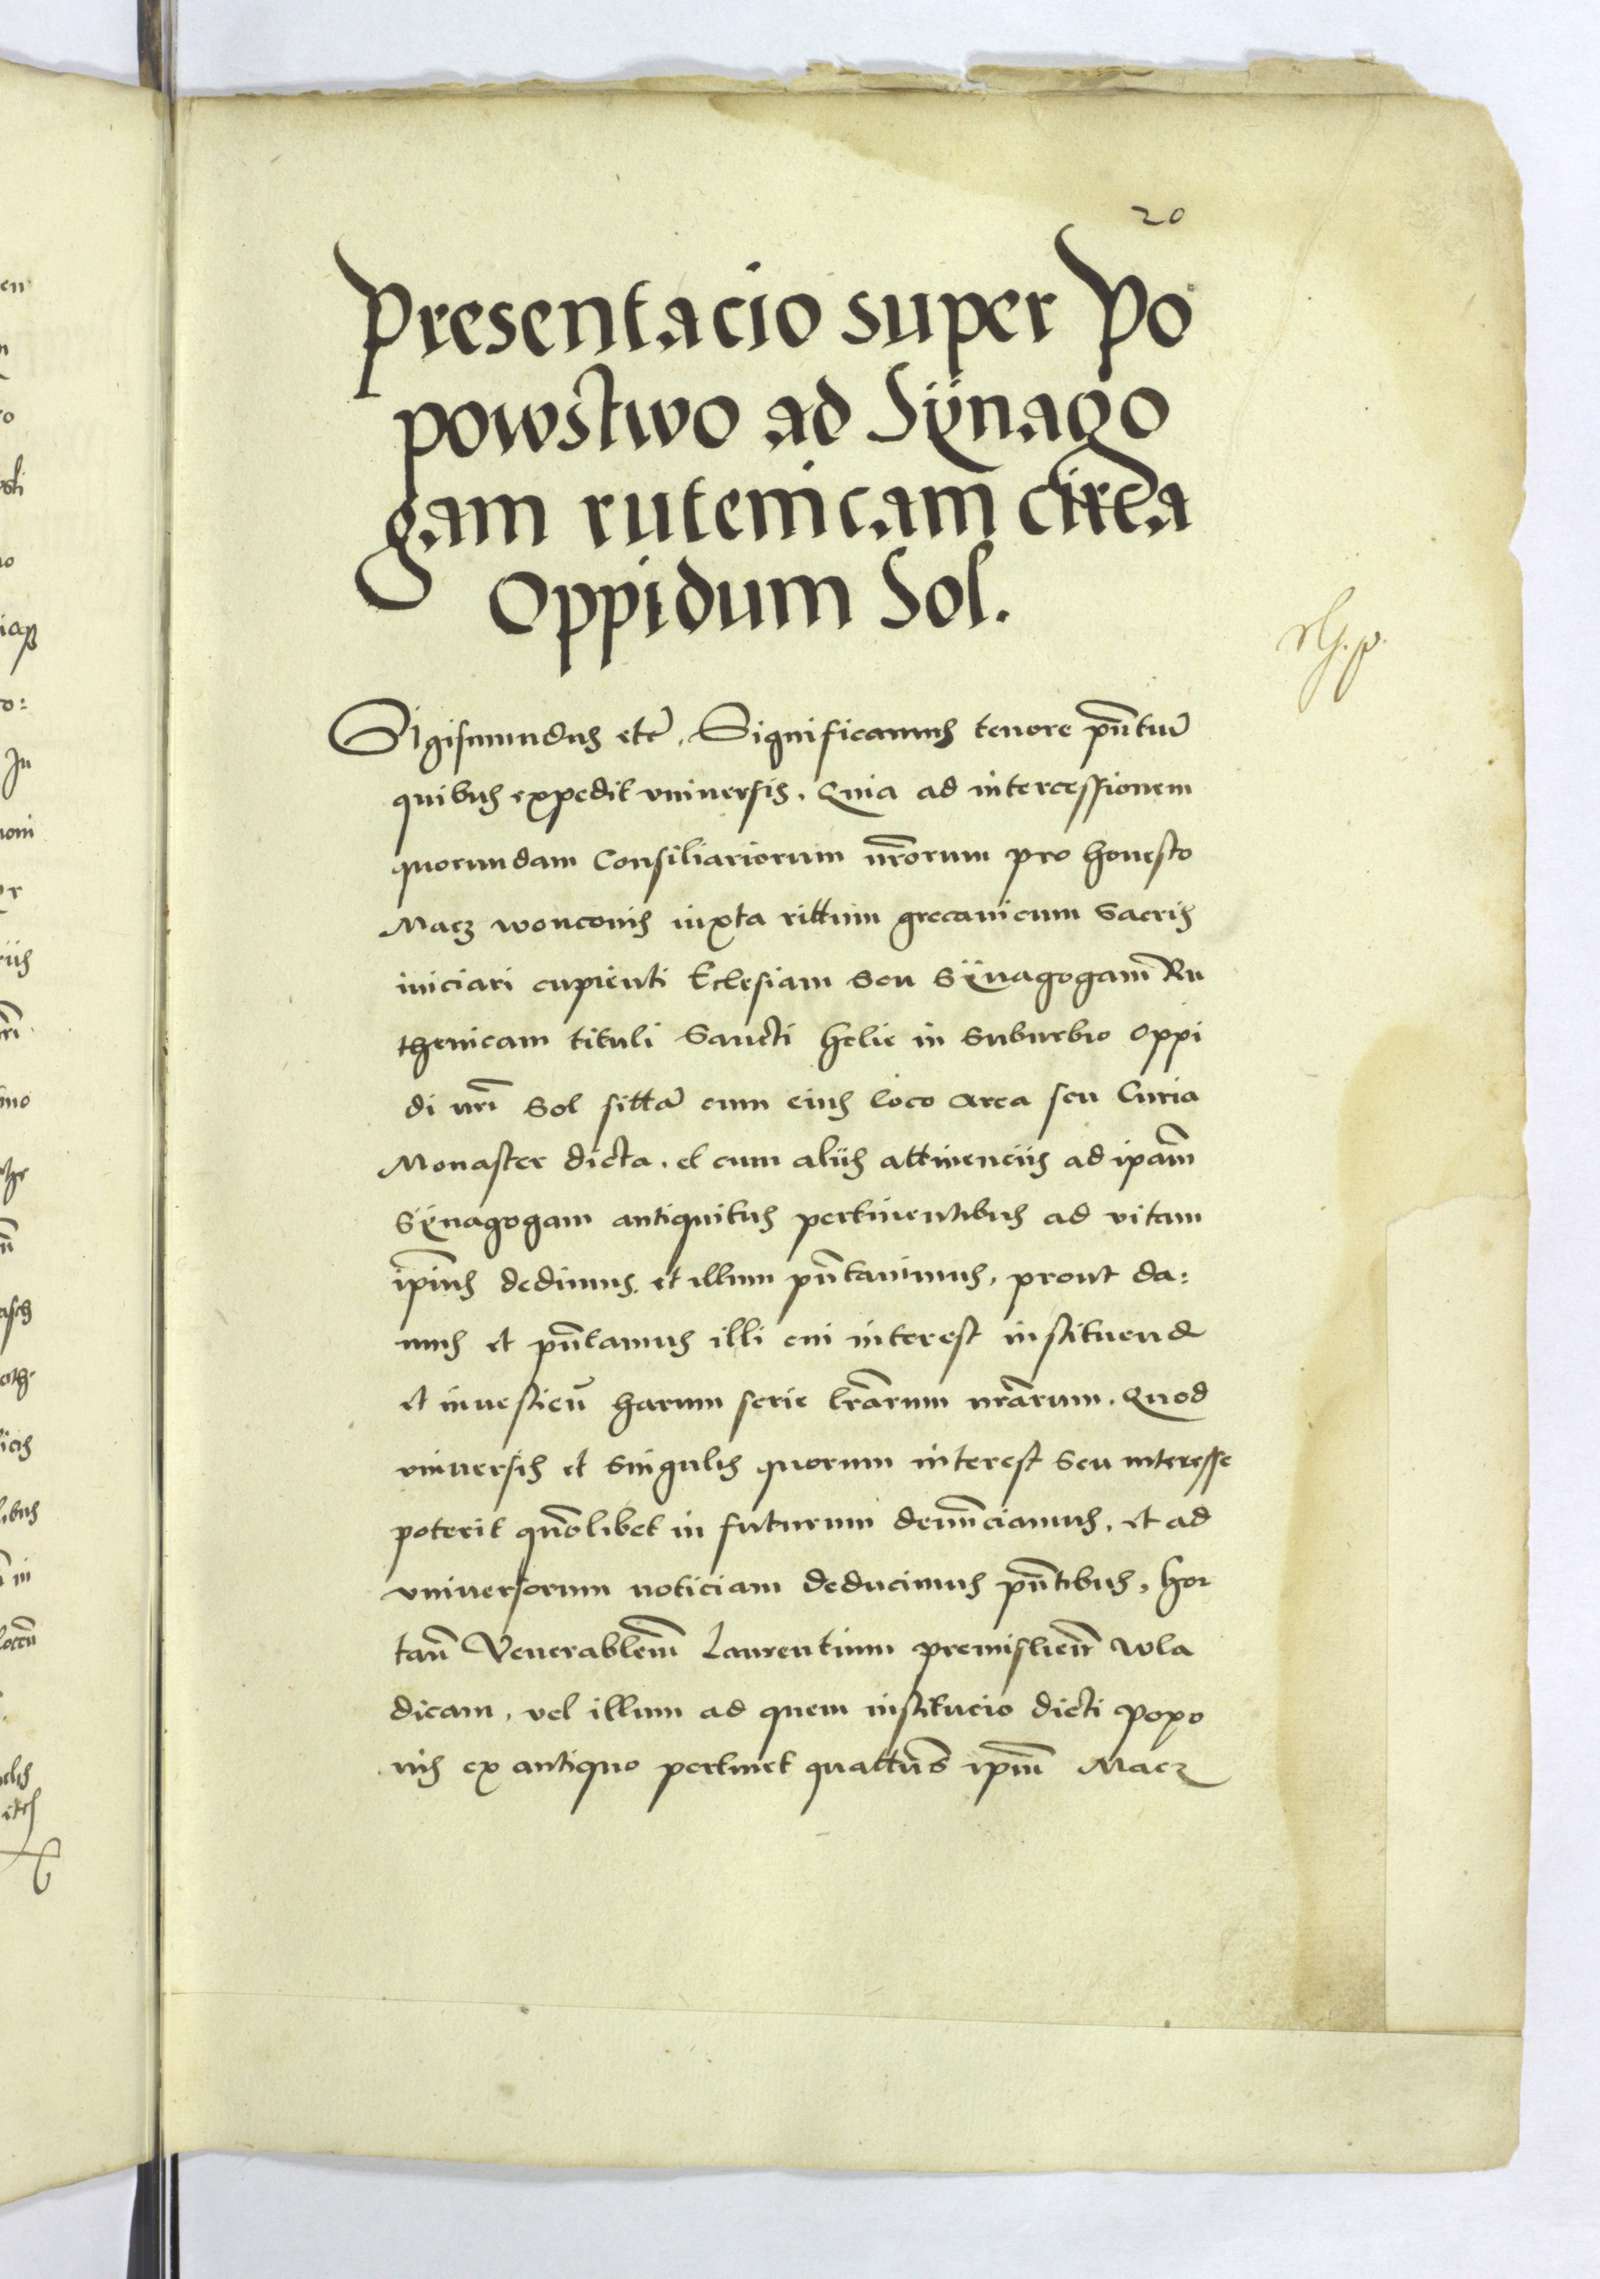 20
Presentacio super Po
powstwo ad Sÿnago
gam rutenicam circa
Oppidum Sol.
Sigismundus etc̄. Significamus tenore pn̄tium̄
quibus expedit vniuersis. Quia ad intercessionem
quorundam Consiliariorum nr̄orum pro honesto
Macz wonconis iuxta rittum grecanicum Sacris
iniciari cupienti Eclesiam Seu Sÿnagogam̄ Ru
thenicam tituli Sancti Helie in Suburbio Oppi
di nr̄i Sol sittā cum eius loco area seu Curia
Monaster dicta. et cum aliis attinenciis ad ip̄am
Sÿnagogam antiquitus pertinentibus ad vitam
ip̄ius dedimus et illum pn̄tauimus, prout da:
mus et pn̄tamus illi cui interest instituend
et inuestien̄ harum serie lr̄arum nr̄arum. Quod
vniuersis et Singulis quorum interest Seu interesse
poterit quōlibet in futurum denun̄ciamus, et ad
vniuersorum noticiam deducimus pn̄tibus, hor
tan̄ Venerablem̄ Laurentium premislien̄ Wla
dicam, vel illum ad quem institucio dicti Popo
nis ex antiquo pertinet quattūs ip̄m Macz